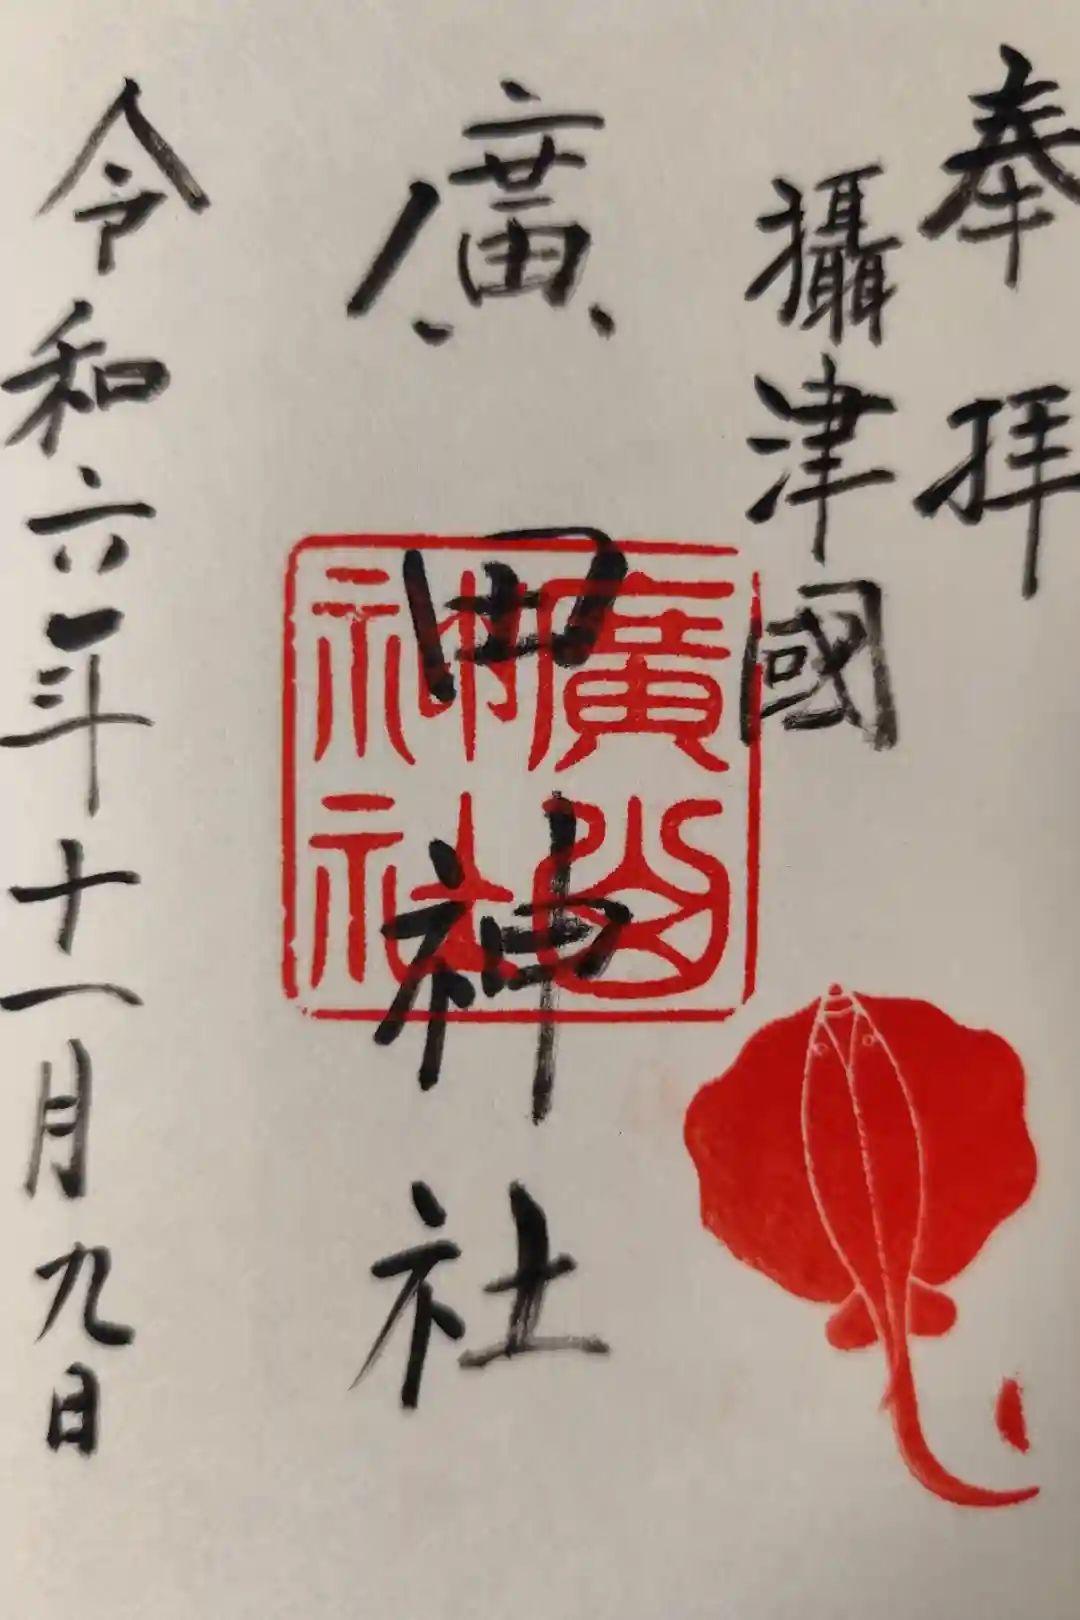 奉拝
攝津國
廣田神社
令和六年十一月九日
廣
神社